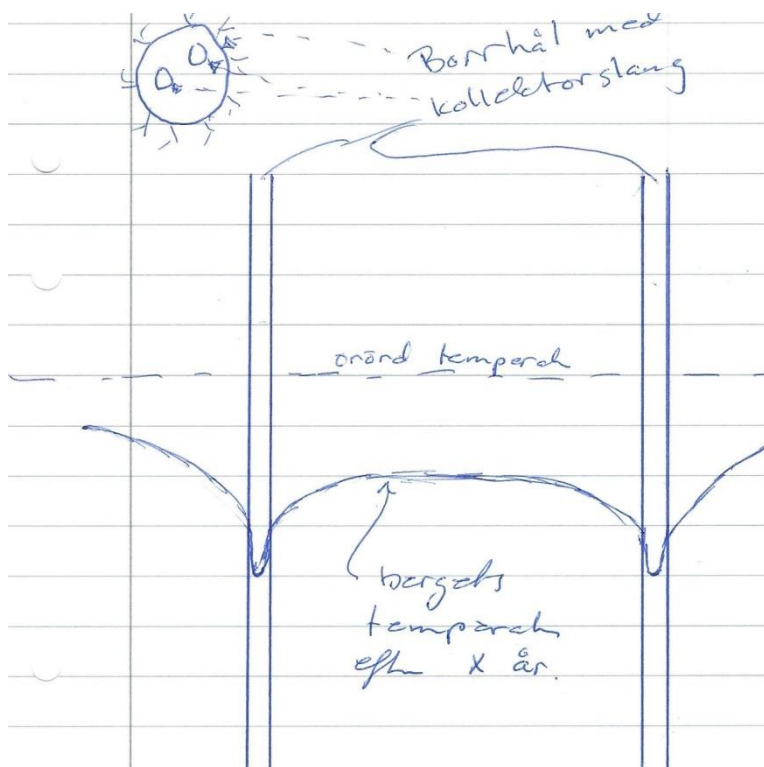 Borrhål med
kollektorslang
orörd temperatur
bergets
temperatur
efter X år.